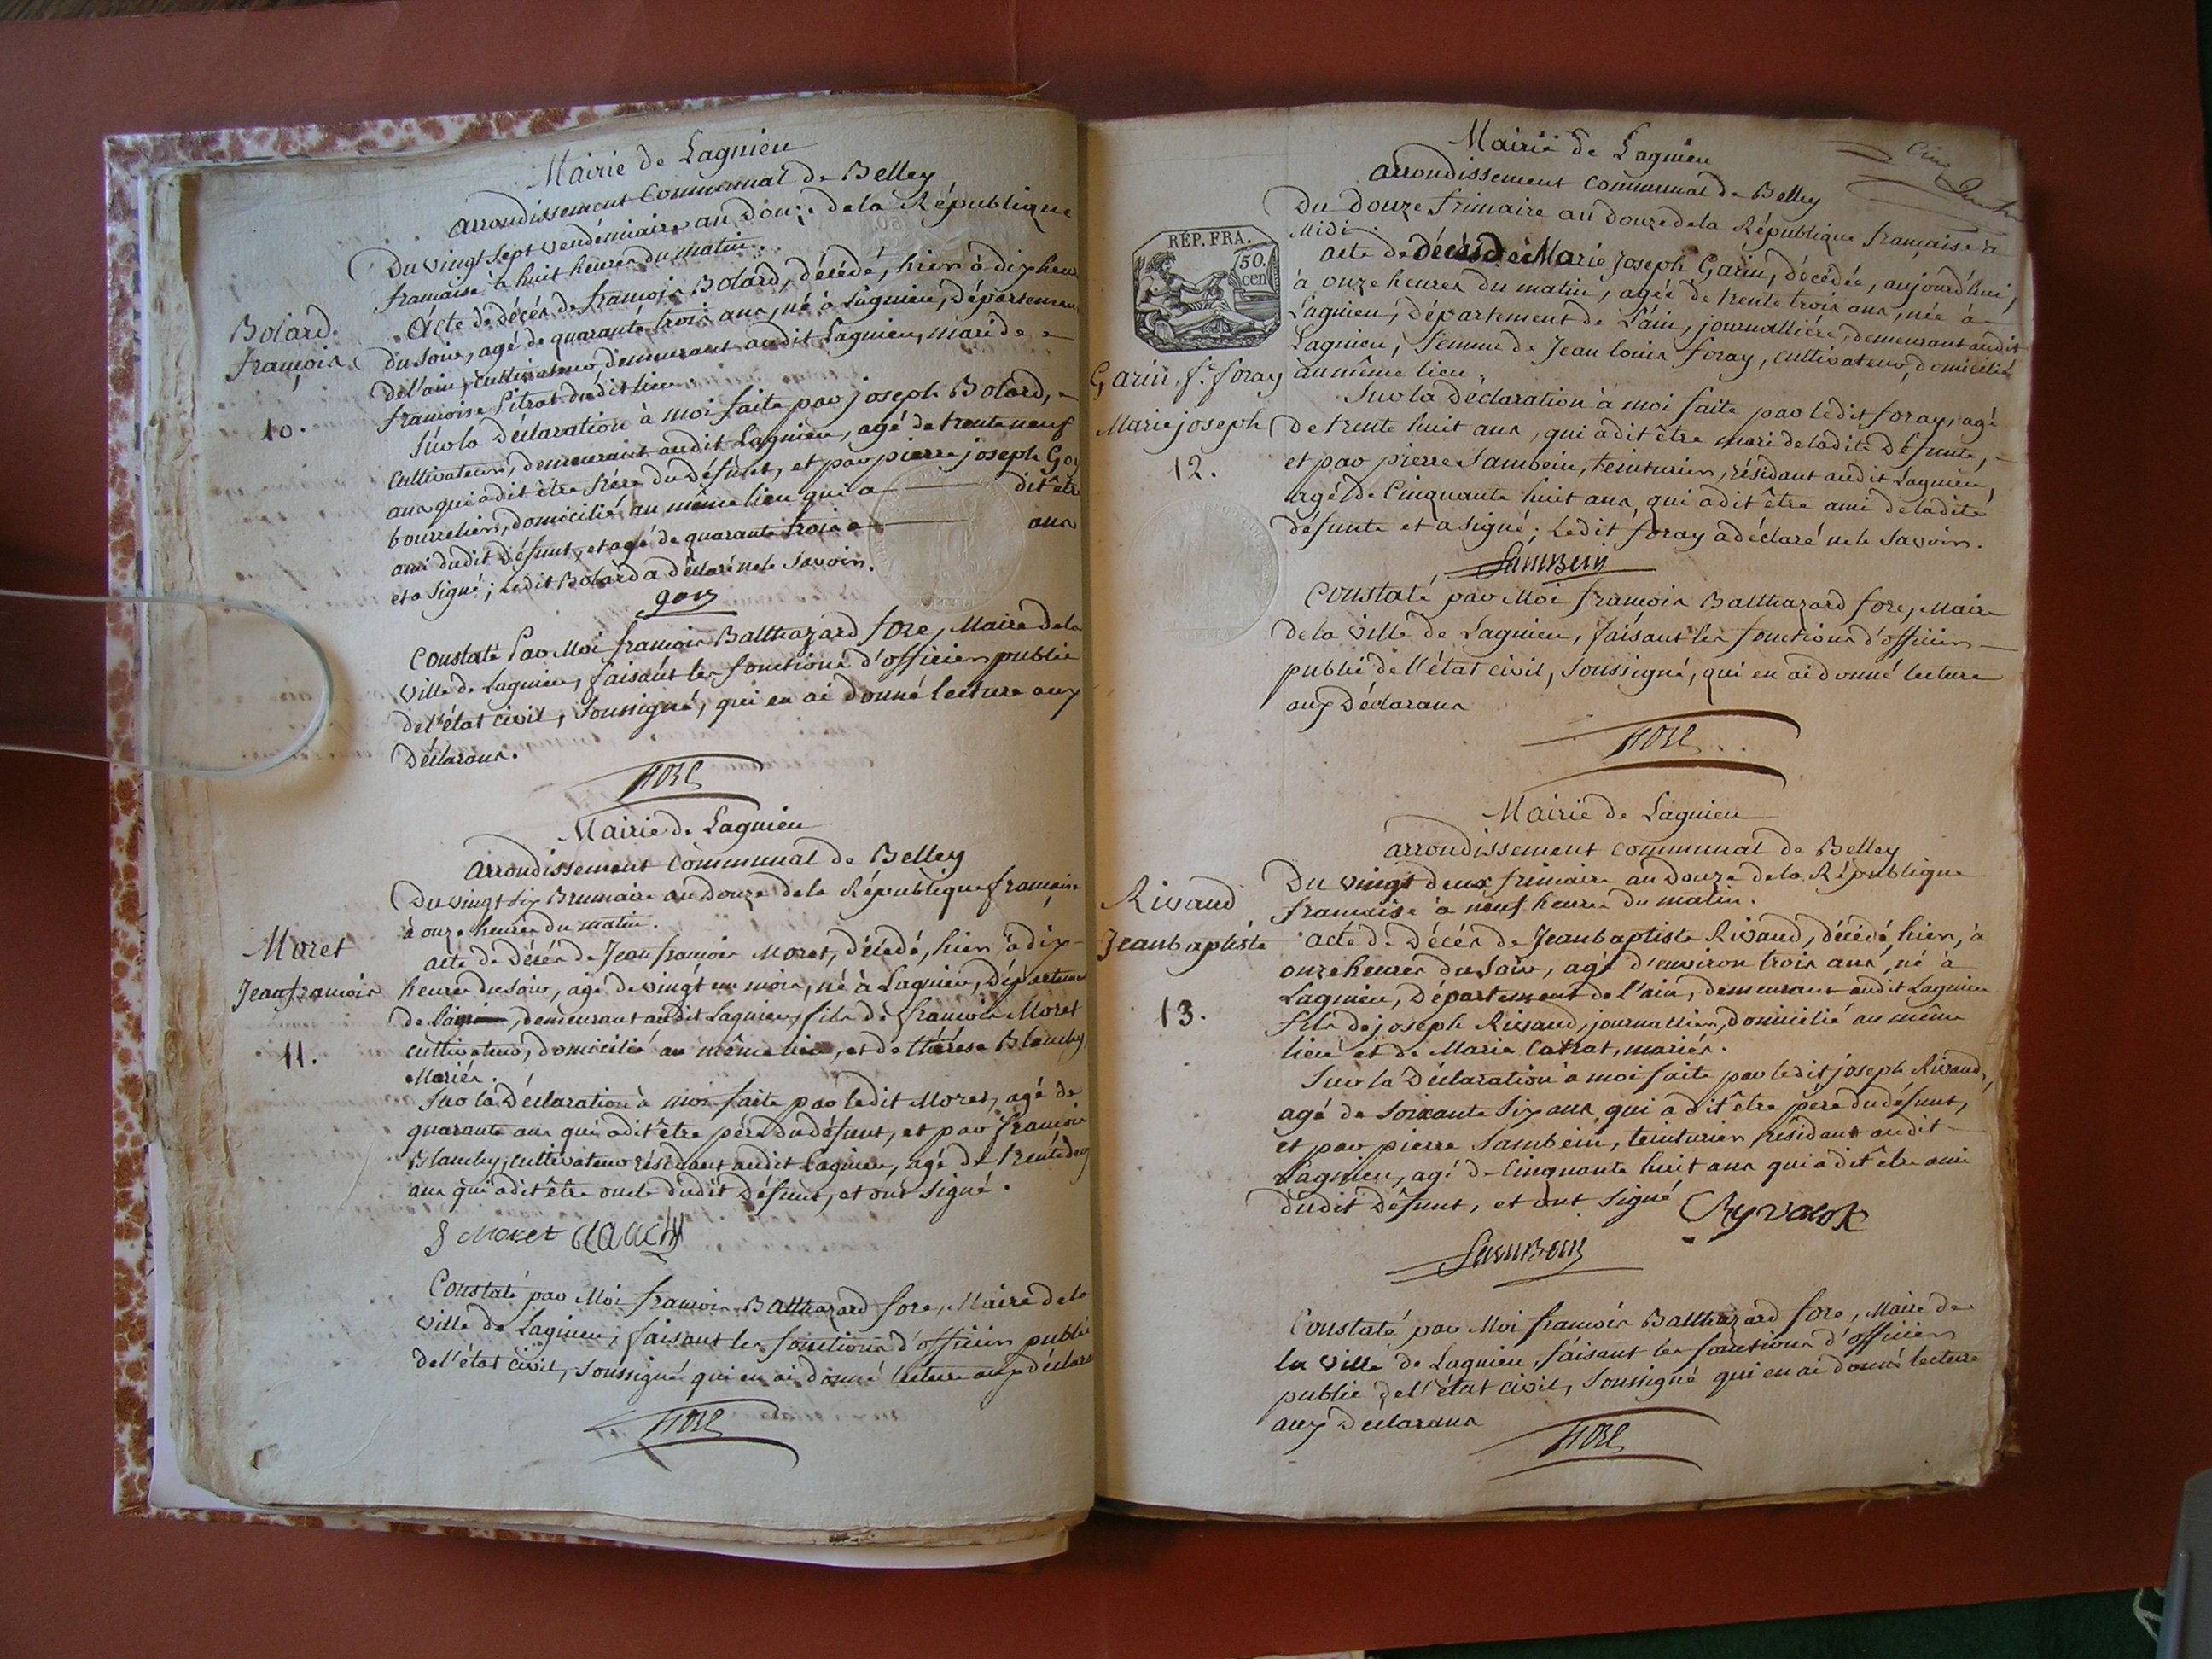 Mairie de Lagnieu
arrondissement Communal de Belley
Du vingt Sept vendémiaire an Douze de la République
française à huit heures du matin.
Acte de décés de françois Bolard, décédé, hier à dix heur
du soir, agé de quarante trois ans, né à Lagnieu, départemen
de l'ain, cultivateur demeurant audit Lagnieu, mari de
françoise Pitrat dudit lieu
Sur la Déclaration à moi faite par joseph Bolard,
Cultivateur, demeurant audit Lagnieu, agé de trente neuf
ans qui a dit être frère du défunt, et par pierre joseph Goy
bourrelier, domicilié au même lieu qui a dit être
ami dudit défunt, et agé de quarante trois ans
et a signé; Ledit Bolard a déclaré ne le savoir.
goy
Constaté Par Moi françois Balthazard fore, Maire de la
ville de Lagnieu, faisant les fonctions d'officier public
de l'état civil, soussigné, qui en ai donné lecture aux
Déclarans.
fore
Bolard
françois
10.
Mairie de Lagnieu
arrondissement Communal de Belley
Du vingt six Brumaire an Douze de la République française
à onze heures du matin.
acte de décés de Jean françois Moret, décédé, hier à dix
heures du soir, agé de vingt un mois, né à Lagnieu, Départeme
de l'ain, demeurant audit Lagnieu, fils de françois Moret
cultivateur, domicilié au même lieu, et de thérèse Blanchy
Mariés.
Sur la Déclaration à moi faite par ledit Moret, agé de
quarante ans qui a dit être père du défunt, et par françois
Blanchy, cultivateur résidant audit Lagnieu, agé de trente deux
ans qui a dit être oncle dudit défunt, et ont signé.
f Moret blanchy
Constaté par Moi françois Balthazard fore, Maire de la
ville de Lagnieu, faisant les fonctions d'officier public
de l'état civil, soussigné qui en ai donné lecture aux déclara
fore
Moret
Jean françois
11.
Cinq
Mairie de Lagnieu
arrondissement communal de Belley
Du Douze frimaire an Douze de la République française à
Midi.
RÉP. FRA.
50.
cen
acte de décés de Marie Joseph Garin, décédée, aujourd'hui,
à onze heures du matin, agée de trente trois ans, née à
Lagnieu, Département de l'ain, journallière, demeurant audit
Lagnieu, femme de Jean louis foray, cultivateur, domicilié
au même lieu.
Sur la déclaration à moi faite par ledit foray, agé
de trente huit ans, qui a dit être mari de ladite Défunte,
et par pierre Sambein, teinturier, résidant audit Lagnieu,
agé de Cinquante huit ans, qui a dit être ami de ladite
défunte et a signé; Ledit foray a déclaré ne le savoir.
Sambein
Constaté par Moi françois Balthazard fore, Maire
de la ville de Lagnieu, faisant les fonctions d'officier
public de l'état civil, soussigné, qui en ai donné lecture
aux Déclarans
fore
Garin, fe. foray
Marie joseph
12.
Mairie de Lagnieu
arrondissement communal de Belley
Du vingt deux frimaire an Douze de la République
française à neuf heures du matin.
acte de décés de Jean baptiste Rivaud, décédé, hier, à
onze heures du soir, agé d'environ trois ans, né à
Lagnieu, Département de l'ain, demeurant audit Lagnieu
fils de joseph Rivaud, journallier, domicilié au même
lieu et de Marie Catrat, mariés.
Sur la Déclaration à moi faite par ledit joseph Rivaud,
agé de soixante six ans qui a dit être père du défunt,
et par pierre Sambein, teinturier résidant audit
Lagnieu, agé de Cinquante huit ans qui a dit être ami
dudit défunt, et ont signé
Sambein
Constaté par Moi françois Balthazard fore, Maire de
la ville de Lagnieu, faisant les fonctions d'officier
public de l'état civil, soussigné qui en ai donné lecture
aux Déclarans
fore
Rivaud
Jean baptiste
13.